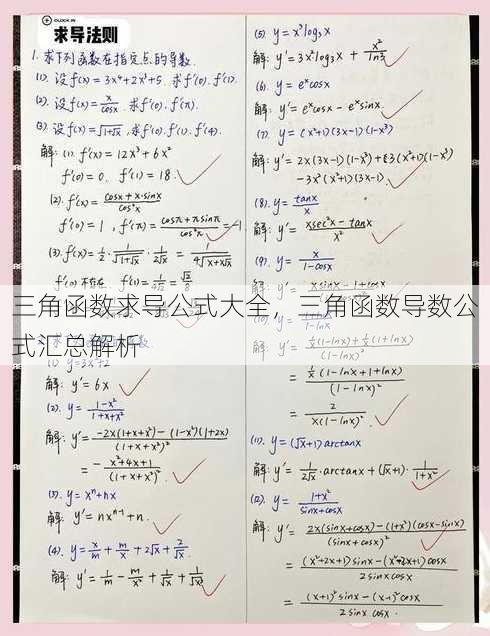 CLOCK IN
求导法则
1. 求下列函数在指定点的导数.
(1). 设f(x) = 3x⁴+2x³+5. 求f'(0). f'(1).
(2). 设f(x) = x/cosx. 求f'(0). f'(π).
(3) 设f(x) = √(1+√x), 求f'(0). f'(1). f'(4).
解: (1). f'(x) = 12x³ + 6x²
f'(0) = 0. f'(1) = 18.
(2). f'(x) = (cosx + x·sinx)/cos²x
f'(0) = 1, f'(π) = (cosπ + πsinπ)/cos²π = -1
(3). f'(x) = 1/2 · 1/√(1+√x) · 1/(2√x) = 1/(4√(x+x√x))
f'(0) 不存在. f'(1) = 1/(4√2) = √2/8
三角函数求导公式大全，三角函数导数公
式汇总解析
(1) y = 3x²+2
解: y' = 6x
(2). y = (1-x²)/(1+x+x²)
解: y' = (-2x(1+x+x²) - (1-x²)(1+2x))/(1+x+x²)²
= - (x²+4x+1)/(1+x+x²)².
(3). y = xⁿ+nx
解: y' = nxⁿ⁻¹+n.
(4). y = x/m + m/x + 2√x + 2/√x.
解: y' = 1/m - m/x² + 1/√x
(5) y = x³log₃x
解: y' = 3x²log₃x + x²/ln3
(6) y = eˣcosx
解: y' = eˣcosx - eˣsinx
(7) y = (x²+1)(3x-1)(1-x³)
解: y' = 2x(3x-1)(1-x³)+3(x²+1)(1-x³)
-3x²(x²+1)(3x-1).
(8). y = tanx/x
解: y' = (xsec²x - tanx)/x²
(9). y = x/(1-cosx)
= (1/x(1-lnx+1+lnx))/(1-lnx)²
= 2/(x(1-lnx)²)
(11). y = (√x+1)arctanx
解: y' = 1/(2√x)·arctanx + (√x+1)·1/(1+x²)
(12). y = (1+x²)/(sinx+cosx)
解: y' = (2x(sinx+cosx)-(1+x²)(cosx-sinx))/(sinx+cosx)²
= ((x²+2x+1)sinx-(x²-2x+1)cosx)/(2sinxcosx)
= ((x+1)²sinx-(x-1)²cosx)/(2sinxcosx).